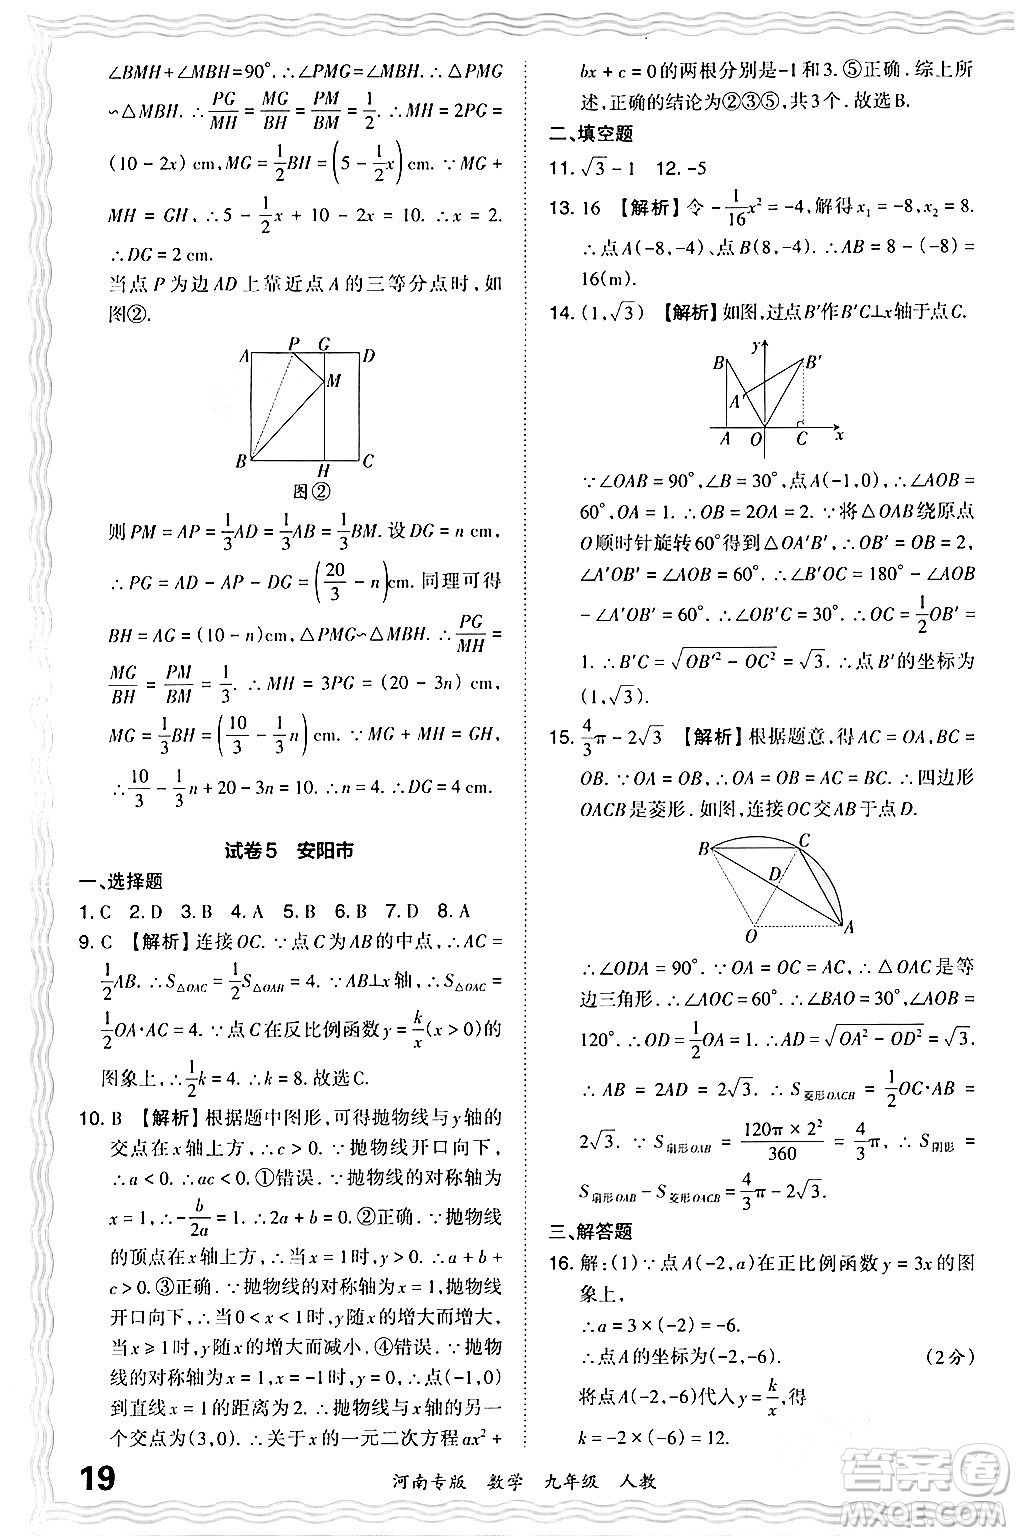 ∠BMH+∠MBH=90°. ∴∠PMG=∠MBH. ∴△PMG
∽△MBH. ∴ PG/MH = MG/BH = PM/BM = 1/2. ∴ MH = 2PG =
(10 - 2x) cm, MG = 1/2 BH = (5 - 1/2 x) cm. ∵ MG +
MH = GH, ∴ 5 - 1/2 x + 10 - 2x = 10. ∴ x = 2.
∴ DG = 2 cm.
当点 P 为边 AD 上靠近点 A 的三等分点时,如
图②.
A P G D
M
B H C
图②
则 PM = AP = 1/3 AD = 1/3 AB = 1/3 BM. 设 DG = n cm.
∴ PG = AD - AP - DG = (20/3 - n) cm. 同理可得
BH = AG = (10 - n) cm, △PMG∽△MBH. ∴ PG/MH =
MG/BH = PM/BM = 1/3. ∴ MH = 3PG = (20 - 3n) cm,
MG = 1/3 BH = (10/3 - 1/3 n) cm. ∵ MG + MH = GH,
∴ 10/3 - 1/3 n + 20 - 3n = 10. ∴ n = 4. ∴ DG = 4 cm.
试卷5 安阳市
一、选择题
1. C 2. D 3. B 4. A 5. B 6. B 7. D 8. A
9. C 【解析】连接OC. ∵点C为AB的中点,∴AC =
1/2 AB. ∴S△OAC = 1/2 S△OAB = 4. ∵AB⊥x轴,∴S△OAC =
1/2 OA·AC = 4. ∵点C在反比例函数y = k/x (x > 0)的
图象上,∴ 1/2 k = 4. ∴ k = 8. 故选C.
10. B 【解析】根据题中图形,可得抛物线与y轴的
交点在x轴上方,∴c > 0. ∵抛物线开口向下,
∴a < 0. ∴ac < 0. ①错误. ∵抛物线的对称轴为
x = 1, ∴ -b/2a = 1. ∴2a + b = 0. ②正确. ∵抛物线
的顶点在x轴上方,∴当x = 1时,y > 0. ∴a + b +
c > 0. ③正确. ∵抛物线的对称轴为x = 1,抛物线
开口向下,∴当0 < x < 1时,y随x的增大而增大,
当x > 1时,y随x的增大而减小. ④错误. ∵抛物
线的对称轴为x = 1,点(-1,0)到直线x = 1
到直线x = 1的距离为2. ∴抛物线与x轴的另
一个交点为(3,0). ∴关于x的一元二次方程ax² +
bx + c = 0的两根分别是-1和3. ⑤正确. 综上所
述,正确的结论为②③⑤,共3个. 故选B.
二、填空题
11. √3 - 1 12. -5
13. 16 【解析】令 -1/16 x² = -4,解得x₁ = -8, x₂ = 8.
∴点A(-8,-4)、点B(8,-4). ∴AB = 8 - (-8) =
16(m).
14. (1,√3) 【解析】如图,过点B′作B′C⊥x轴于点C.
B y B′
A′
A O C x
∵∠OAB = 90°, ∠B = 30°, 点A(-1,0), ∴∠AOB =
60°, OA = 1. ∴OB = 2OA = 2. ∵将△OAB绕原点
O顺时针旋转60°得到△OA′B′, ∴OB′ = OB = 2,
∠A′OB′ = ∠AOB = 60°. ∴∠B′OC = 180° - ∠AOB
- ∠A′OB′ = 60°. ∴∠OB′C = 30°. ∴OC = 1/2 OB′ =
1. ∴B′C = √(OB′² - OC²) = √3. ∴点B′的坐标为
(1,√3).
15. 4/3 π - 2√3 【解析】根据题意,得AC = OA, BC =
OB. ∵OA = OB, ∴OA = OB = AC = BC. ∴四边形
OACB是菱形. 如图,连接OC交AB于点D.
B C
D
O A
∴∠ODA = 90°. ∵OA = OC = AC, ∴△OAC是等
边三角形. ∴∠AOC = 60°. ∴∠BAO = 30°, ∠AOB =
120°. ∴OD = 1/2 OA = 1. ∴AD = √(OA² - OD²) = √3.
∴AB = 2AD = 2√3. ∴S菱形OACB = 1/2 OC·AB =
2√3. ∵S扇形OAB = 120π × 2²/360 = 4/3 π, ∴S阴影 =
S扇形OAB - S菱形OACB = 4/3 π - 2√3.
三、解答题
16. 解:(1)∵点A(-2,a)在正比例函数y = 3x的图
象上,
∴a = 3 × (-2) = -6.
∴点A的坐标为(-2,-6). (2分)
将点A(-2,-6)代入y = k/x, 得
k = -2 × (-6) = 12.
19 河南专版 数学 九年级 人教